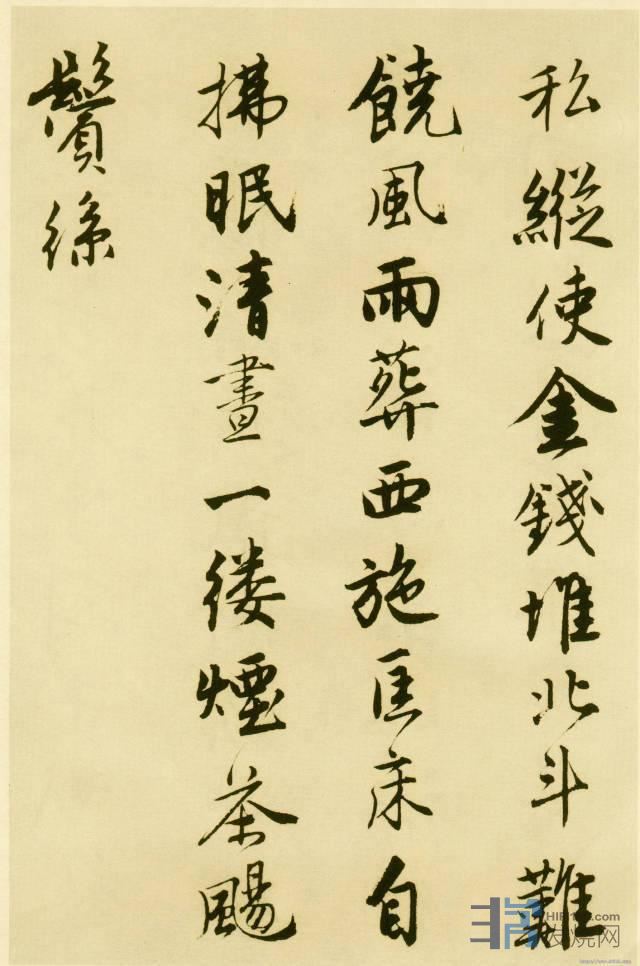 私縱使金錢堆北斗難
饒風雨葬西施匡床自
拂眠清晝一縷煙茶颺
鬢絲
发烧网